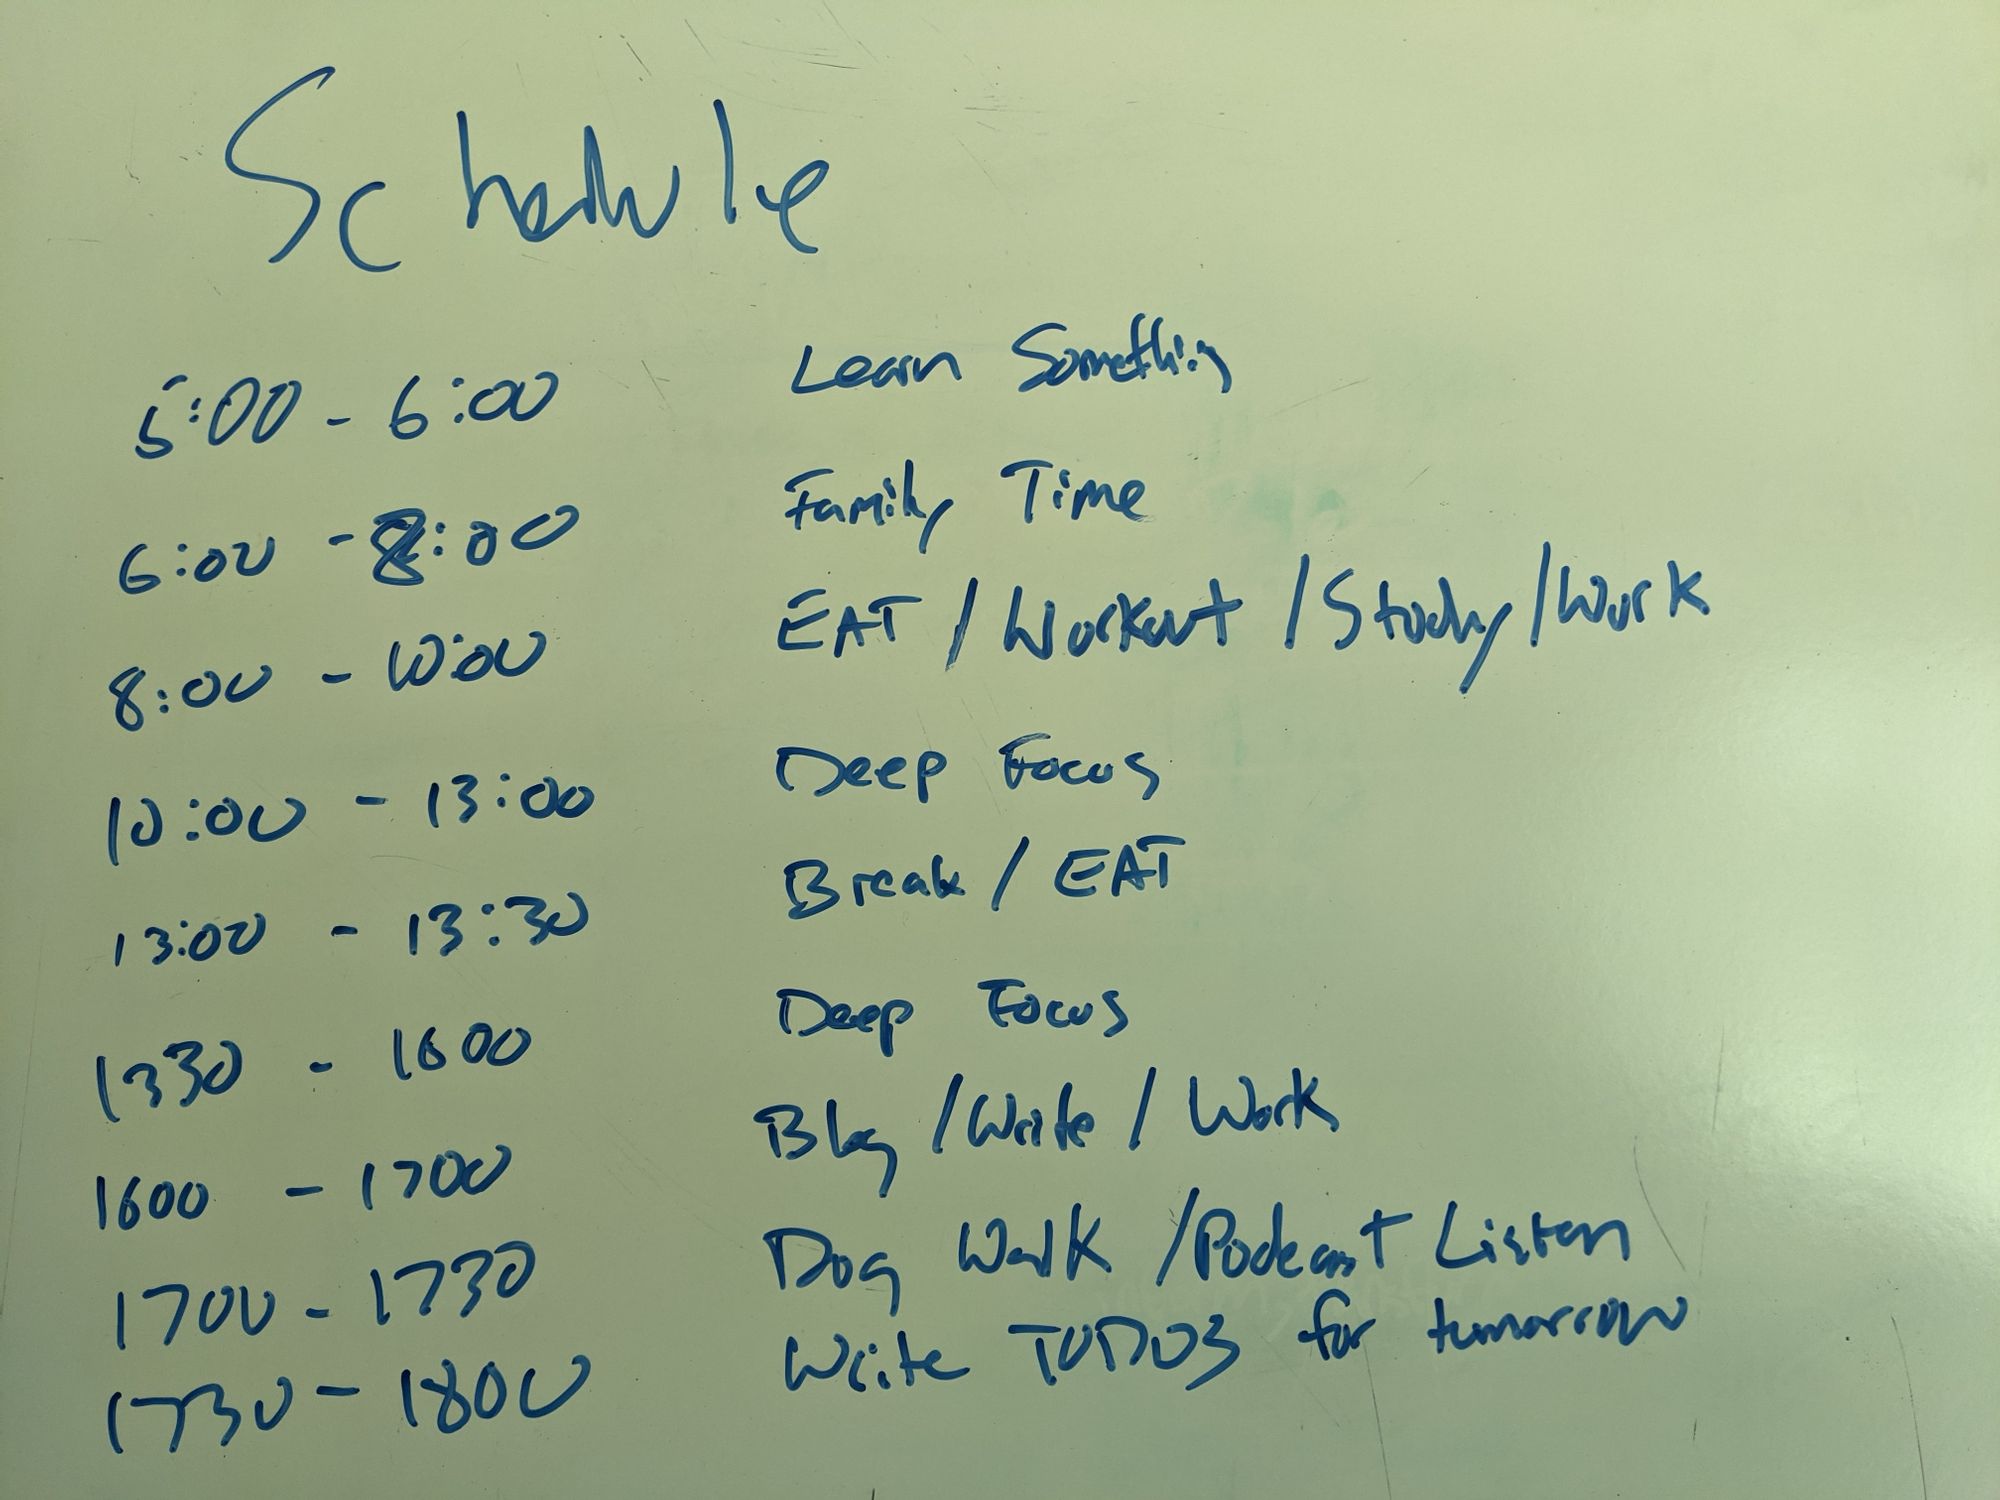 Schedule
5:00 - 6:00 Learn Something
6:00 - 8:00 Family Time
8:00 - 10:00 EAT / Workout / Study / Work
10:00 - 13:00 Deep Focus
13:00 - 13:30 Break / EAT
1330 - 1600 Deep Focus
1600 - 1700 Blog / Write / Work
1700 - 1730 Dog Walk / Podcast Listen
1730 - 1800 Write TODOS for tomorrow